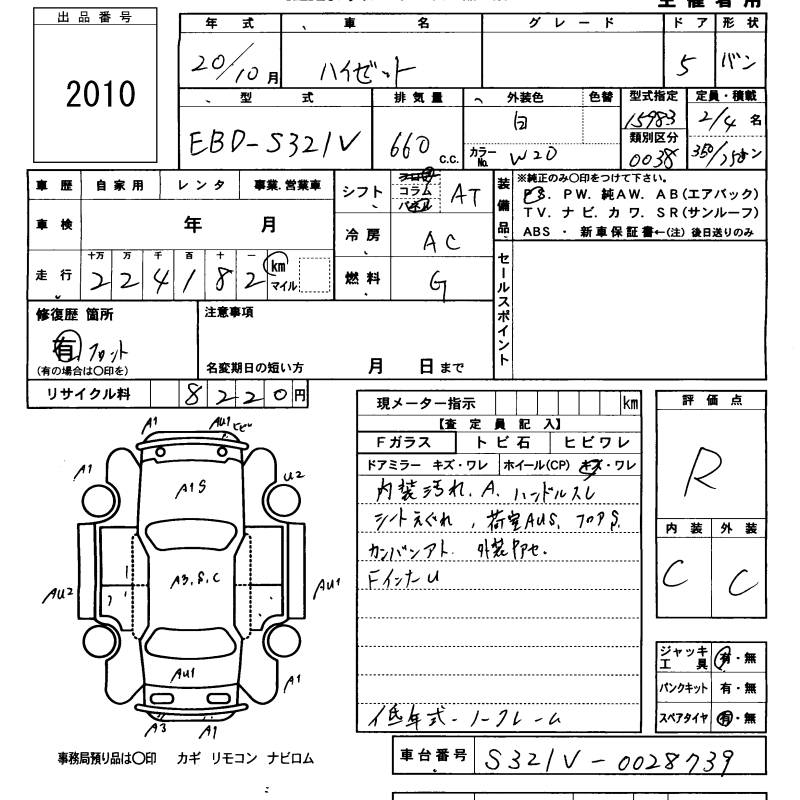 出品番号
2010
年式 車名 グレード ドア 形状
20/10月 ハイゼット 5 バン
型式 排気量 外装色 色替 型式指定 定員・積載
EBD-S321V 660 c.c. 白 15983 2/4 名
類別区分
カラーNo. W20 0038 350/250キン
車歴 自家用 レンタ 事業.営業車
シフト フロア コラム パネル AT
装備品
※純正のみ○印をつけて下さい。
PS. PW. 純AW. AB(エアバック)
TV. ナビ. カワ. SR(サンルーフ)
ABS ・ 新車保証書←(注) 後日送りのみ
車検 年 月
冷房 AC
走行 十万 万 千 百 十 一
224182 km マイル
燃料 G
セールスポイント
修復歴 箇所
有 フロント
(有の場合は○印を)
注意事項
名変期日の短い方 月 日まで
リサイクル料 8220円
現メーター指示 km
【査定員記入】
Fガラス トビ石 ヒビワレ
ドアミラー キズ・ワレ ホイール(CP) キズ・ワレ
内装汚れ. A. ハンドルスレ
シートえぐれ , 荷室AUS. フロアS.
カンバンアト. 外装アセ.
FインナーU
低年式-ノークレーム
評価点
R
内装 外装
C C
ジャッキ工具 有・無
パンクキット 有・無
スペアタイヤ 有・無
A1 AU1 ヒビ
A1 U2
A1S
A3,S,C
AU2 AU1
AU1
A1
A3 A1
事務局預り品は○印 カギ リモコン ナビロム
車台番号 S321V-0028739